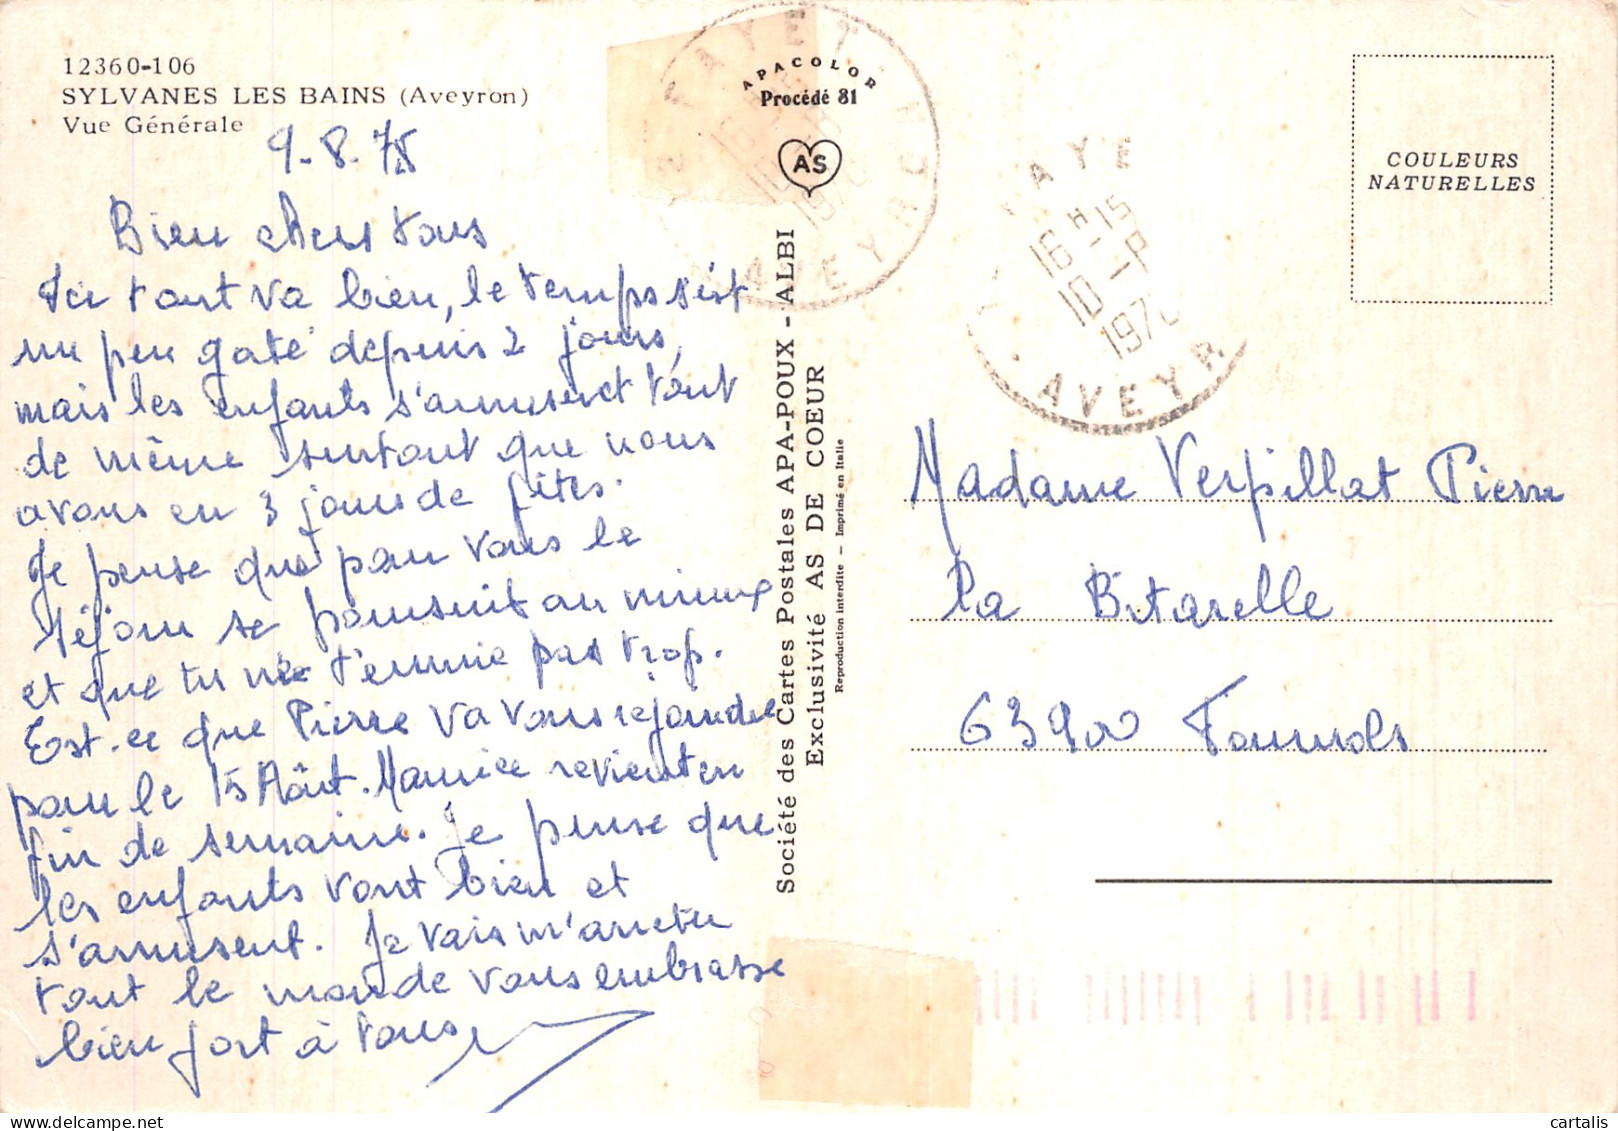 12360-106
SYLVANES LES BAINS (Aveyron)
Vue Générale
9-8-78
Bien chers tous
Ici tout va bien, le temps s'est
un peu gaté depuis 2 jours,
mais les enfants s'amusent tout
de même surtout que nous
avons eu 3 jours de fêtes.
Je pense que pour vous le
séjour se poursuit au mieux
et que tu ne t'ennuie pas trop.
Est-ce que Pierre va vous rejoindre
pour le 15 Août. Maurice revient en
fin de semaine. Je pense que
les enfants vont bien et
s'amusent. Je vais m'arrêter
tout le monde vous embrasse
bien fort à tous
APACOLOR
Procédé 81
AS
Société des Cartes Postales APA-POUX - ALBI
Exclusivité AS DE COEUR
Reproduction interdite - Imprimé en Italie
FAYET
AVEYRON
16 H 15
10 -
AYE
16 H 15
10 -
AVEYR
COULEURS
NATURELLES
Madame Verpillat Pierre
La Bitarelle
63900 Tournols
cartalis
www.delcampe.net